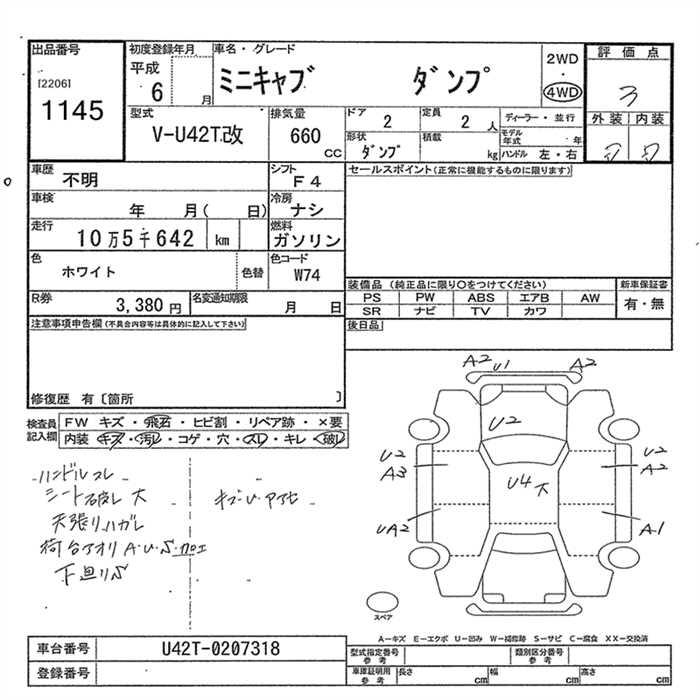 出品番号
[2206]
1145
初度登録年月
平成
6 月
車名・グレード
ミニキャブ ダンプ
2WD
・
4WD
評価点
3
外装 内装
型式
V-U42T改
排気量
660
CC
ドア
2
定員
2 人
ディーラー・並行
モデル年式 年
形状
ダンプ
積載
kg
ハンドル 左・右
車歴
不明
シフト
F4
セールスポイント(正常に機能するものに限ります)
車検
年 月( 日)
冷房
ナシ
走行
10万5千642 km
燃料
ガソリン
色
ホワイト
色替
色コード
W74
装備品 (純正品に限り○をつけてください)
新車保証書
PS PW ABS エアB AW
有・無
SR ナビ TV カワ
R券
3,380 円
名変通知期限
月 日
後日品
注意事項申告欄(不具合内容等は具体的に記入して下さい)
修復歴 有〔箇所 〕
検査員記入欄
FW キズ・飛石・ヒビ割・リペア跡・×要
内装 キズ・汚レ・コゲ・穴・スレ・キレ・破レ
ハンドルスレ
シート破レ 大
キズ・U・アセ
天張りハガレ
荷台アオリ A・U・S・加工
下廻りS
A2 U1 A2
U2
U2 U2
A3 A2
U4 大
UA2 A1
スペア
A-キズ E-エクボ U-凹み W-補修跡 S-サビ C-腐食 XX-交換済
車台番号
U42T-0207318
型式指定番号
参考
類別区分番号
参考
登録番号
車庫証明用
参考
長さ cm
幅 cm
高さ cm